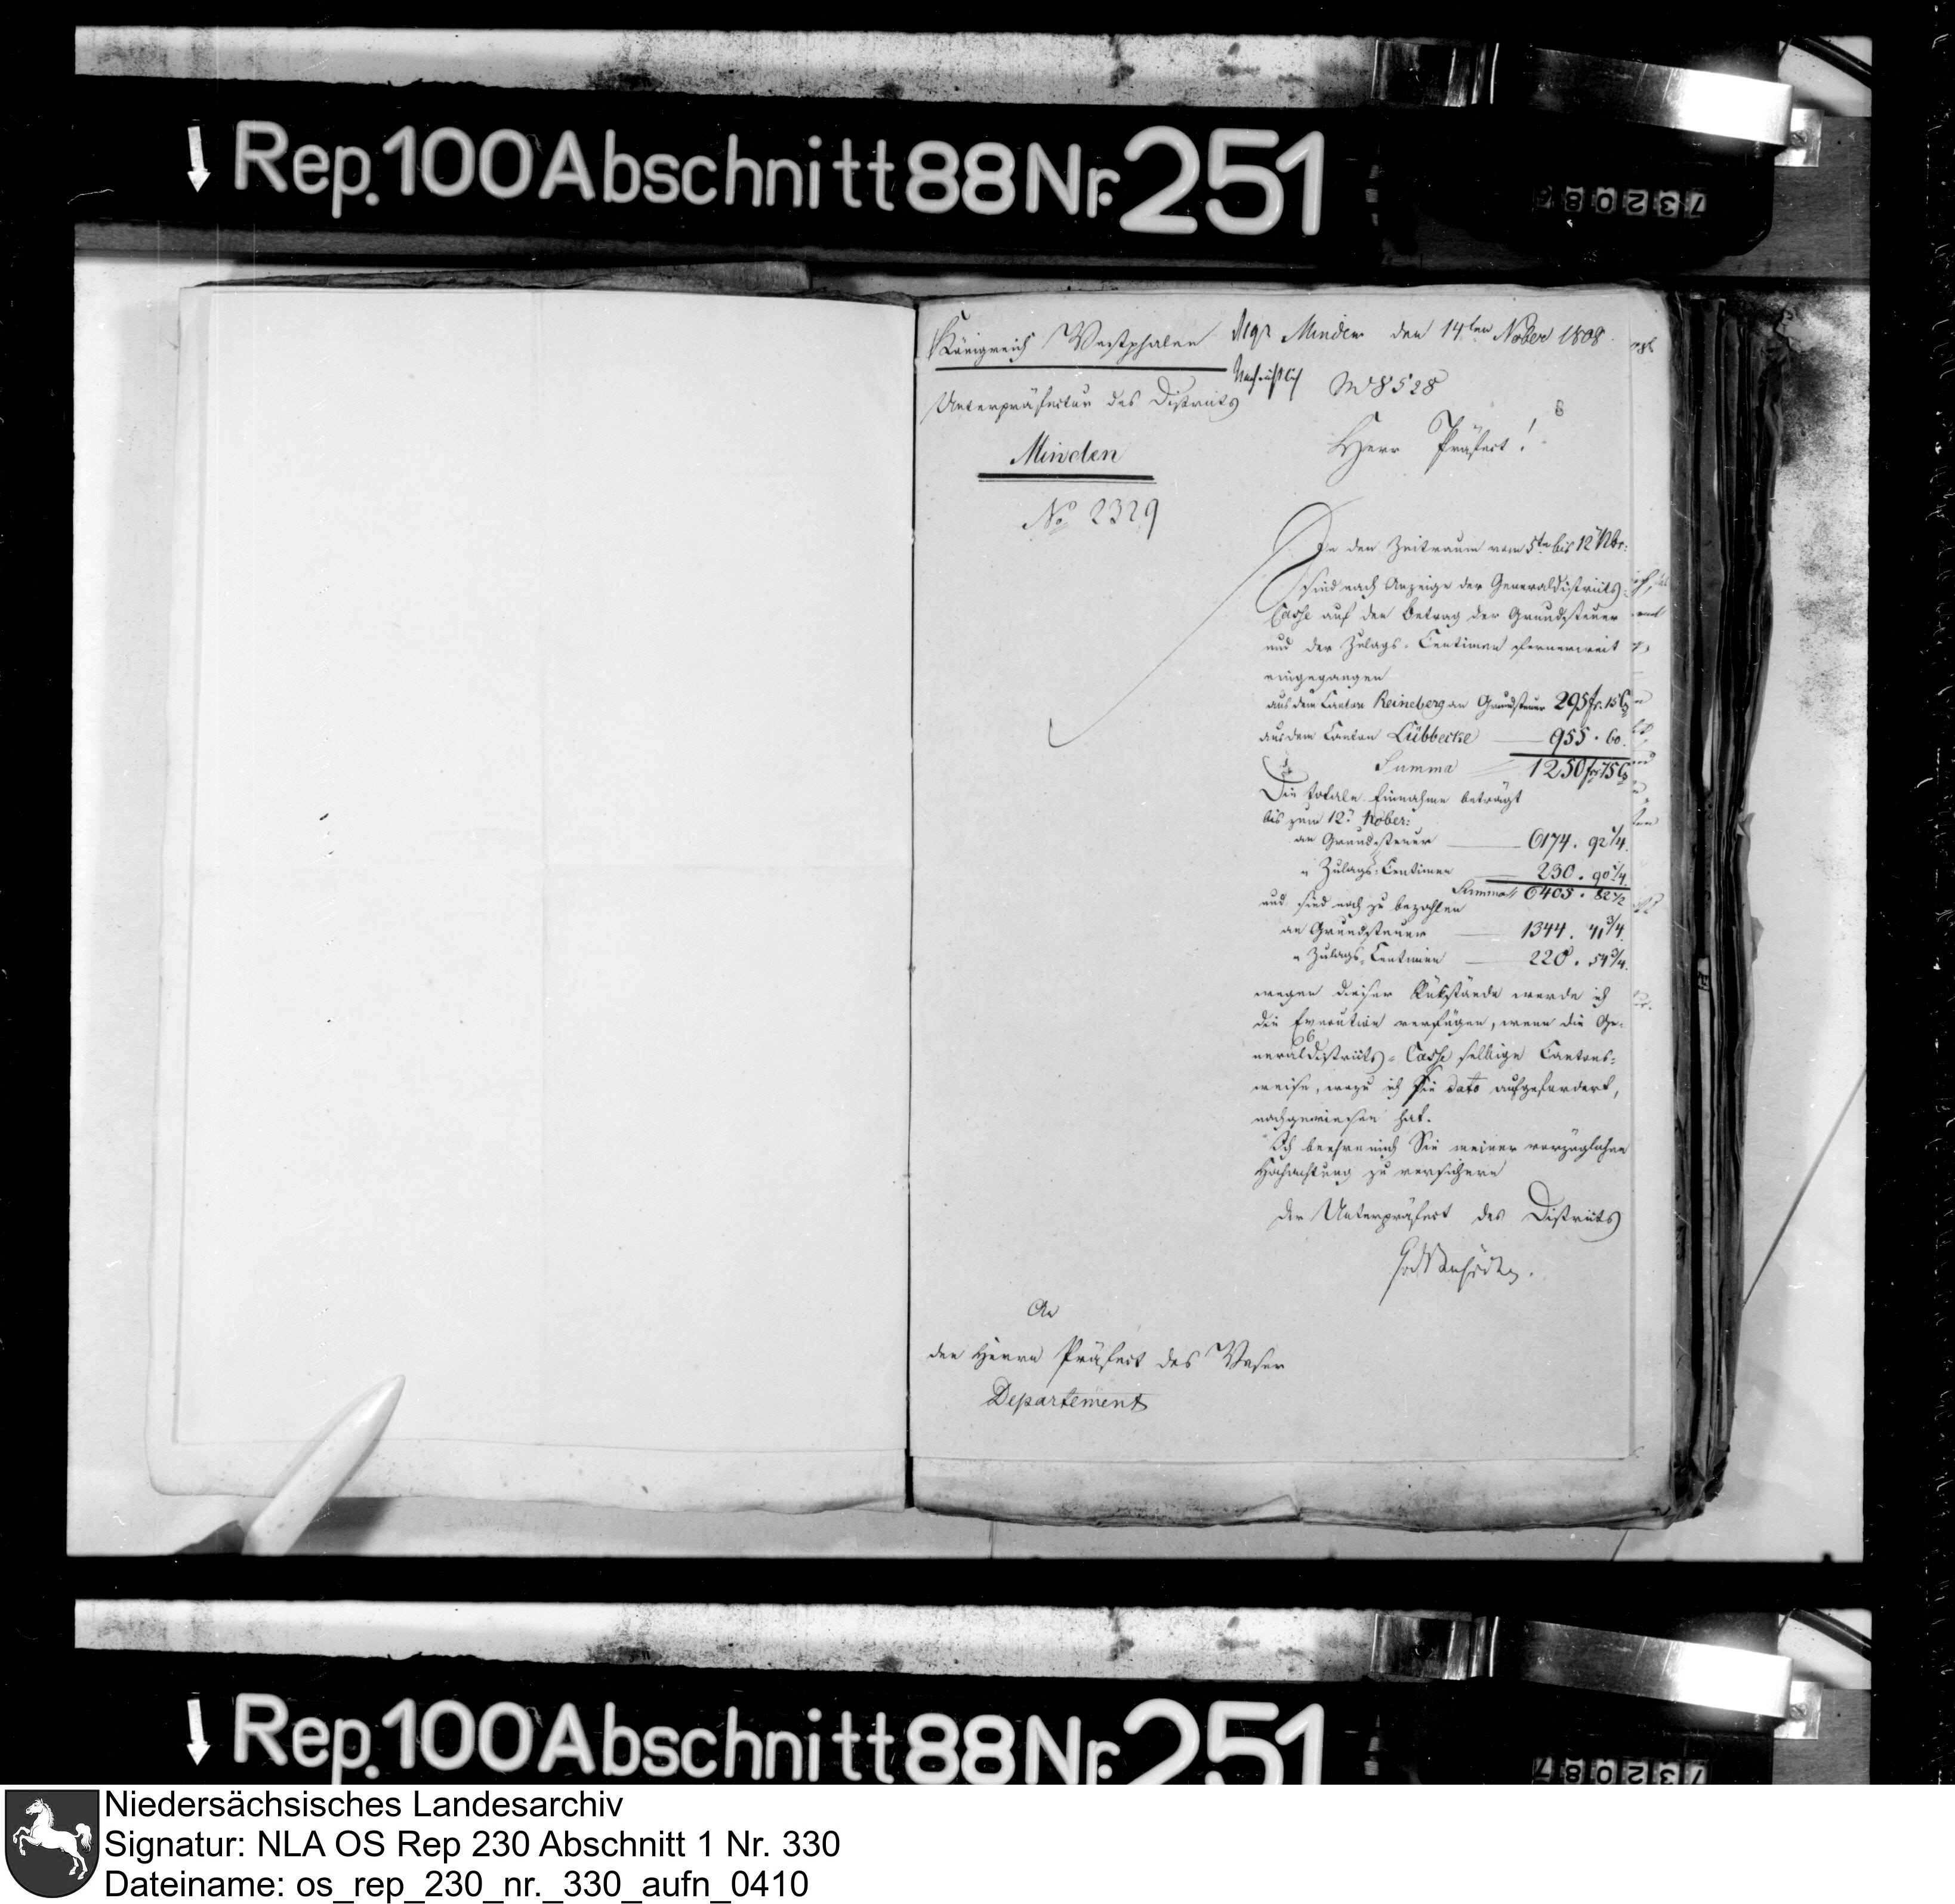 Rep. 100 Abschnitt 88 Nr. 251
732087
Königreich Westphalen
Minden den 14ten Nober 1808.
Unterpräfectur des Districts
Nachrichtlich
8528
Minden
Herr Präfect!
No 2329
In den Zeitraum vom 5ten bis 12 Nbr:
sind nach Anzeige der Generaldistricts-
Casse auf den Betrag der Grundsteuer
und der Zulags-Centimen fernerweit
eingegangen
aus dem Canton Reineberg an Grundsteuer 295 fr. 15 C
aus dem Canton Lübbecke 955. 60.
Summa 1250 fr 75 C
Die totale Einnahme beträgt
bis zum 12. Nober:
an Grundsteuer 6174. 92 1/4.
" Zulags-Centimen 230. 90 1/4.
Summa 6405. 82 1/2
und sind noch zu bezahlen
an Grundsteuer 1344. 41 3/4.
" Zulags-Centimen 220. 54 3/4.
wegen dieser Rükstände werde ich
die Execution verfügen, wenn die Ge-
neraldistricts-Casse selbige Cantons-
weise, wozu ich sie dato aufgefordert,
nachgewiesen hat.
Ich beehre mich Sie meiner vorzüglichen
Hochachtung zu versichern
der Unterpräfect des Districts
An
den Herrn Präfect des Weser
Departement
Rep. 100 Abschnitt 88 Nr. 251
732087
Niedersächsisches Landesarchiv
Signatur: NLA OS Rep 230 Abschnitt 1 Nr. 330
Dateiname: os_rep_230_nr._330_aufn_0410